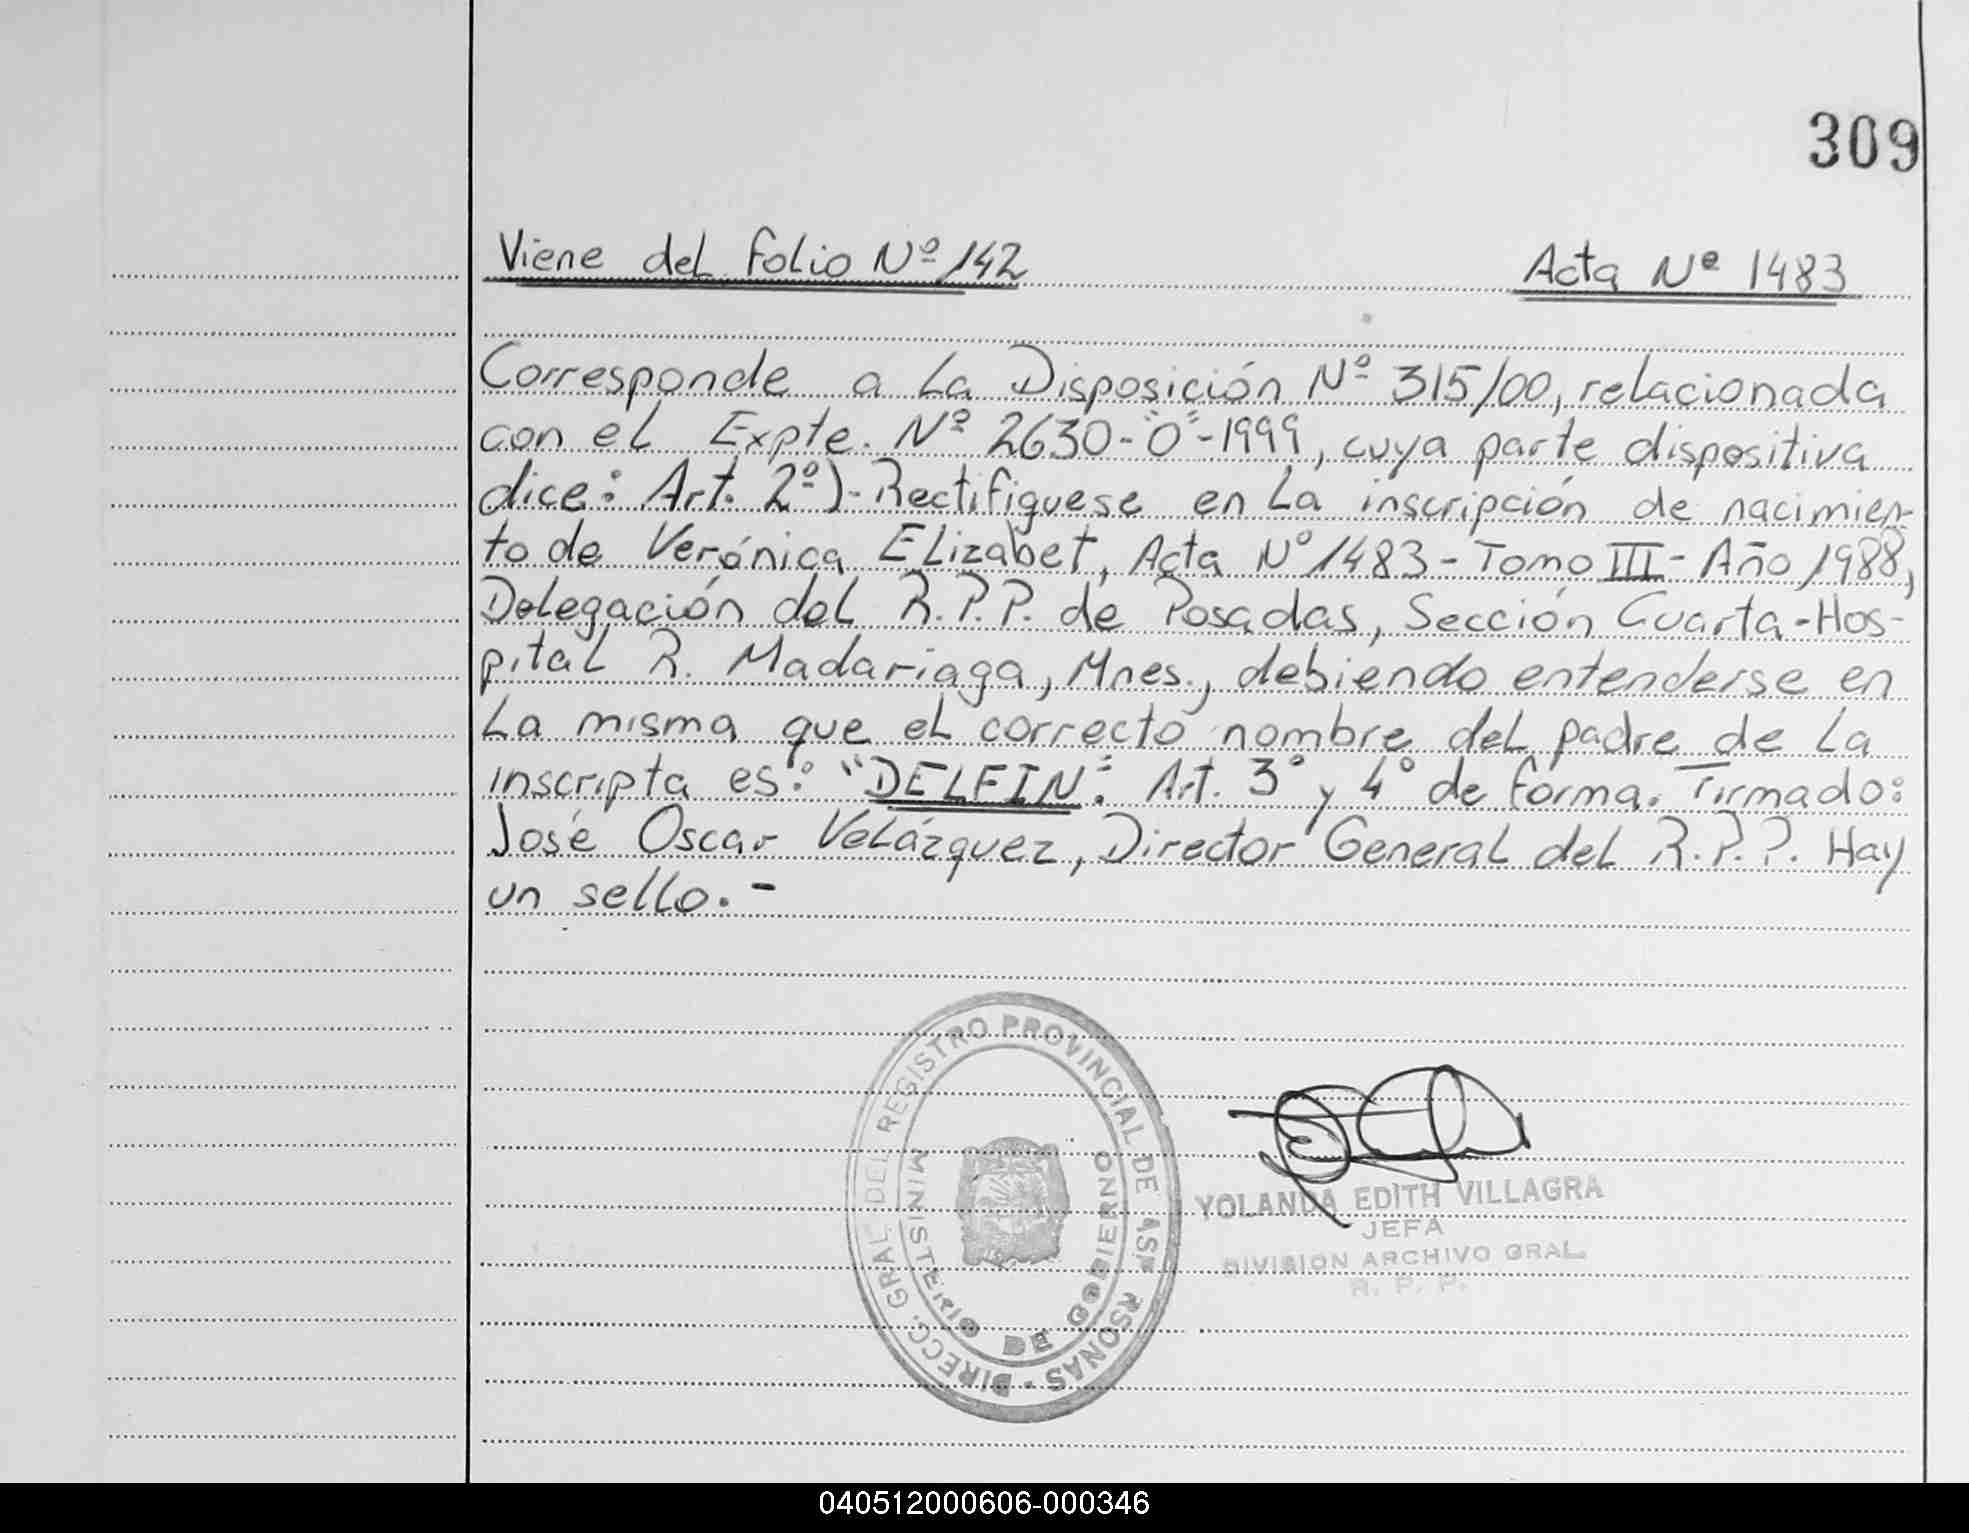 309
Viene del folio Nº 142
Acta Nº 1483
Corresponde a la Disposición Nº 315/00, relacionada
con el Expte. Nº 2630-"O"-1999, cuya parte dispositiva
dice: Art. 2º)- Rectifiquese en la inscripción de nacimien-
to de Verónica Elizabet, Acta Nº 1483 - Tomo III - Año 1988,
Delegación del R.P.P. de Posadas, Sección Cuarta - Hos-
pital R. Madariaga, Mnes., debiendo entenderse en
la misma que el correcto nombre del padre de la
inscripta es: "DELFIN". Art. 3° y 4° de forma. Firmado:
José Oscar Velázquez, Director General del R.P.P. Hay
un sello.-
DIRECC. GRAL. DEL REGISTRO PROVINCIAL DE LAS PERSONAS -
MINISTERIO DE GOBIERNO
YOLANDA EDITH VILLAGRA
JEFA
DIVISION ARCHIVO GRAL.
R. P. P.
040512000606-000346